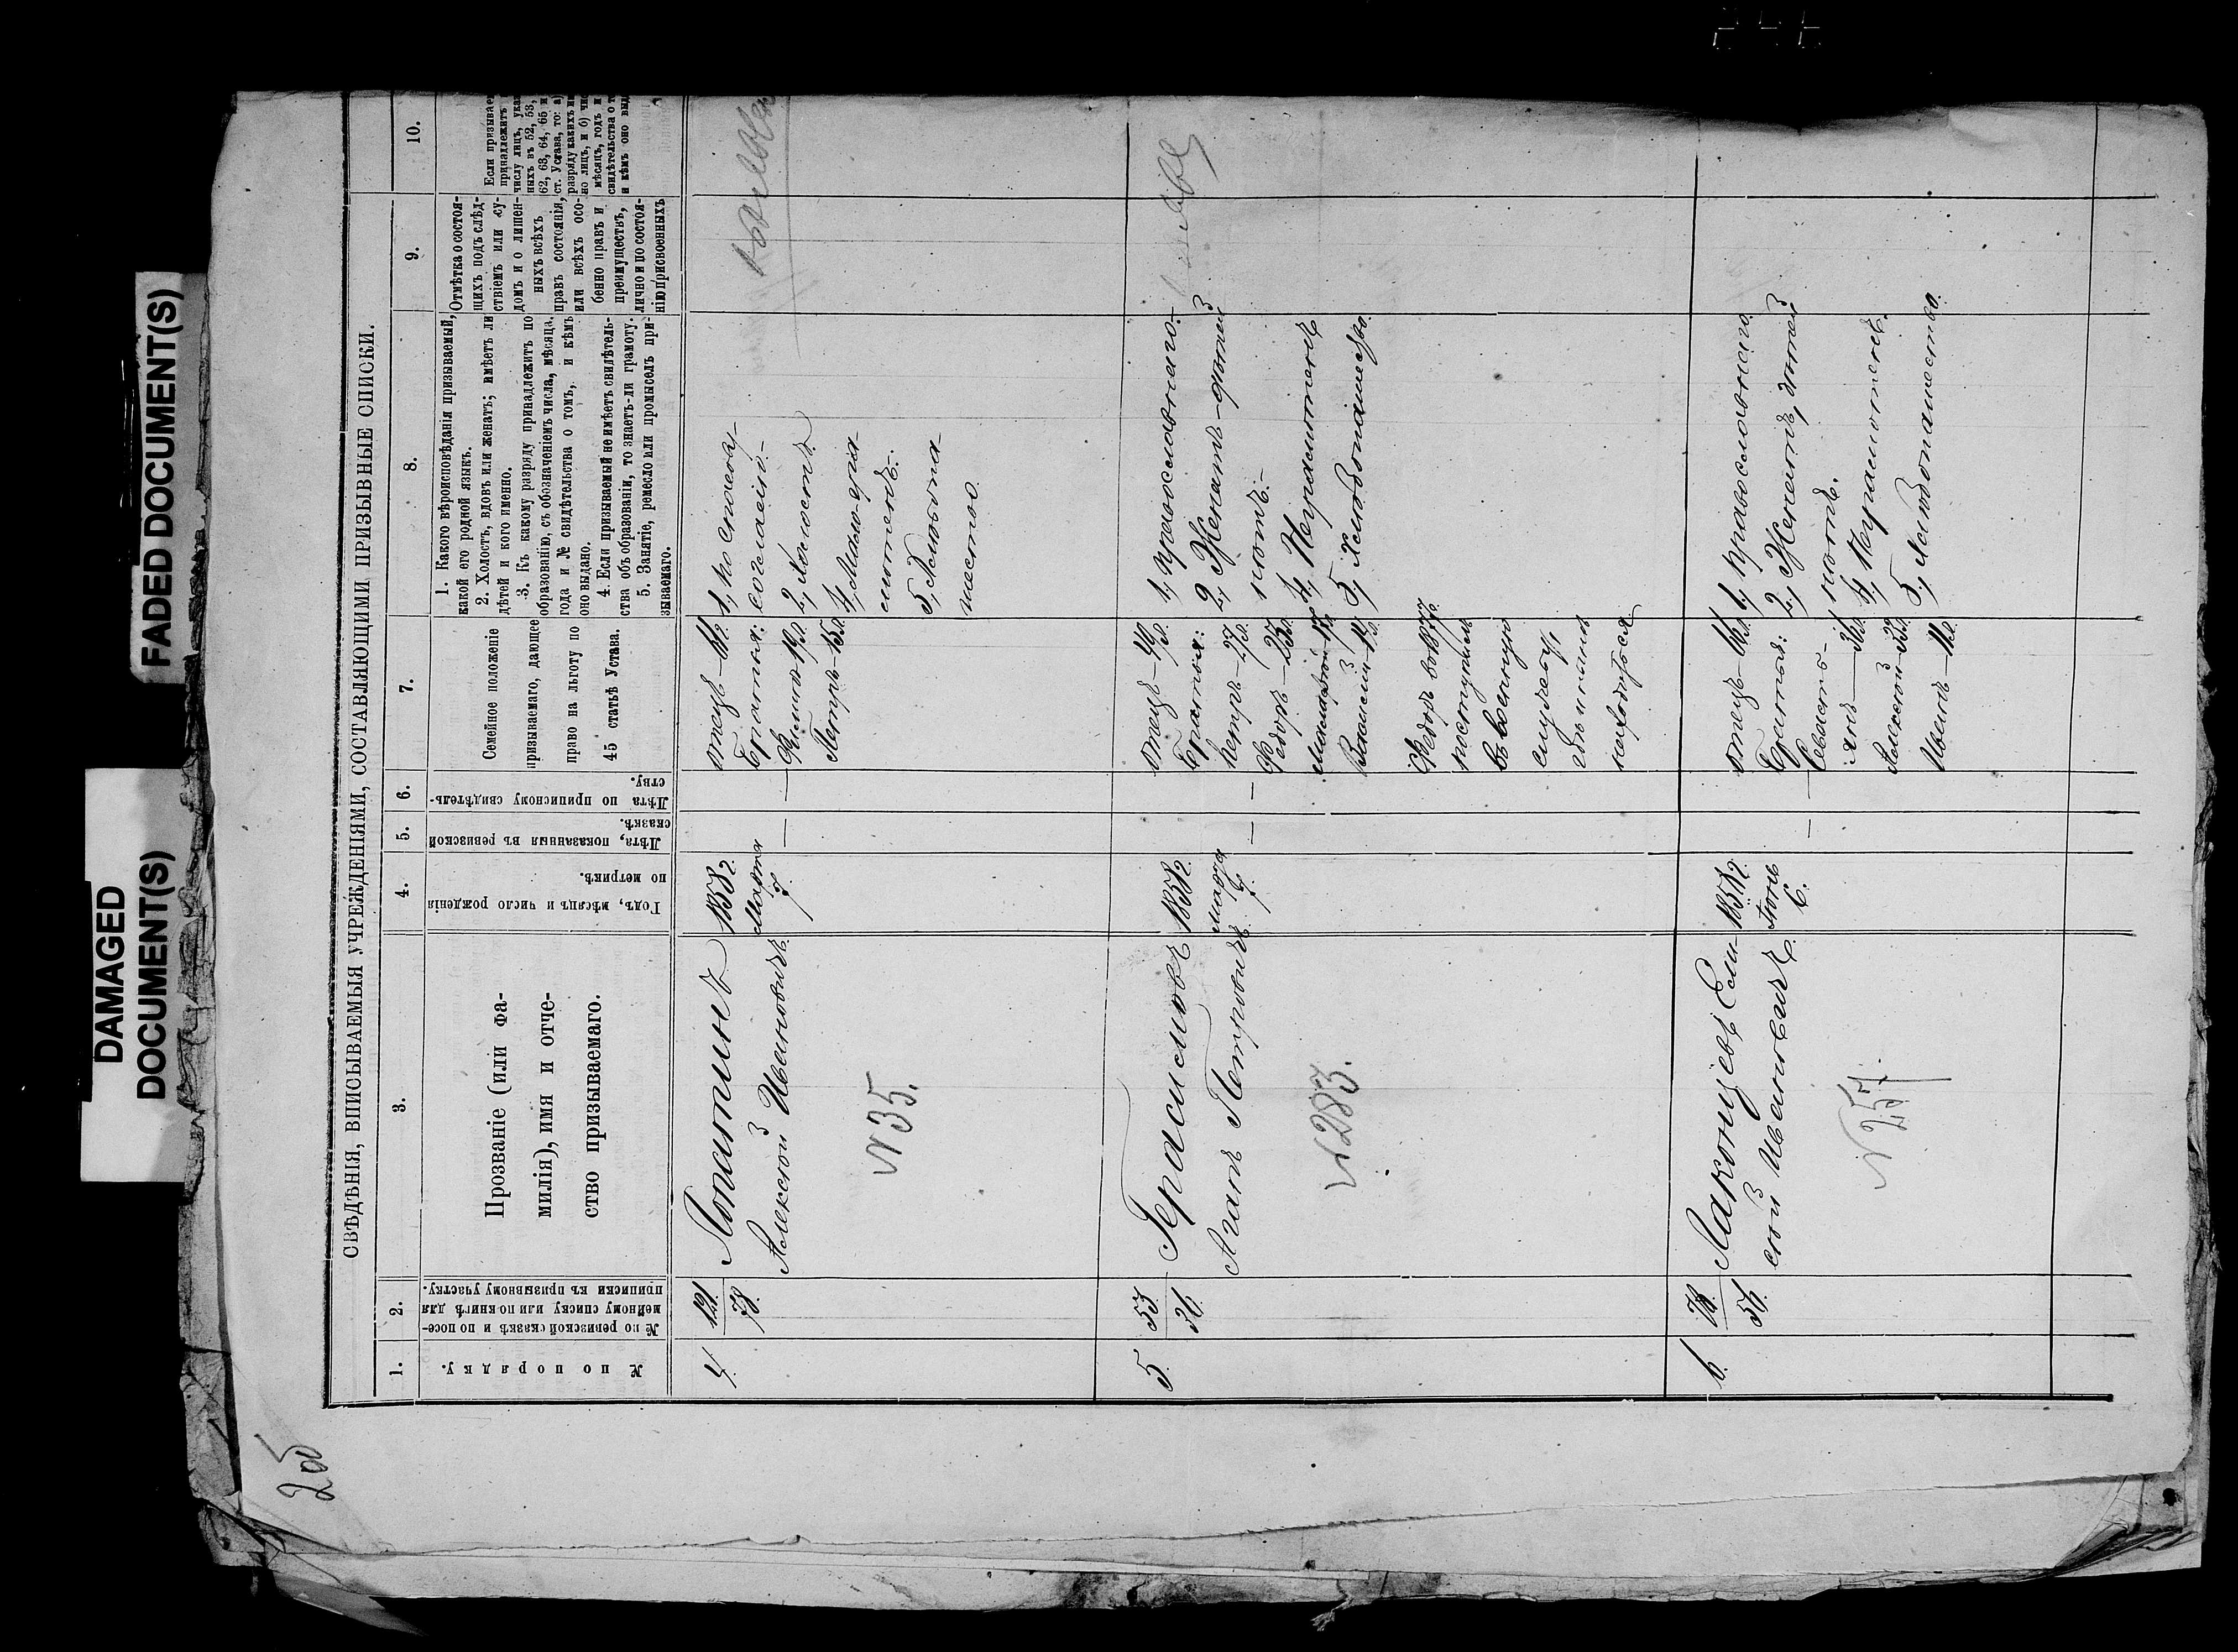 FADED DOCUMENT(S)
DAMAGED
DOCUMENT(S)
СВѢДѢНІЯ, ВПИСЫВАЕМЫЯ УЧРЕЖДЕНІЯМИ, СОСТАВЛЯЮЩИМИ ПРИЗЫВНЫЕ СПИСКИ.
1.
2.
3.
4.
5.
6.
7.
8.
9.
10.
№ по порядку.
№ по ревизской сказкѣ и по посе-
мейному списку или по книгѣ для
приписки къ призывному участку.
Прозваніе (или фа-
милія), имя и отче-
ство призываемаго.
Годъ, мѣсяцъ и число рожденія
по метрикѣ.
Лѣта, показанныя въ ревизской
сказкѣ.
Лѣта по приписному свидѣтель-
ству.
Семейное положеніе
призываемаго, дающее
право на льготу по
45 статьѣ Устава.
1. Какого вѣроисповѣданія призываемый,
какой его родной языкъ.
2. Холостъ, вдовъ или женатъ; имѣетъ ли
дѣтей и кого именно.
3. Къ какому разряду принадлежитъ по
образованію, съ обозначеніемъ числа, мѣсяца,
года и № свидѣтельства о томъ, и кѣмъ
оно выдано.
4. Если призываемый не имѣетъ свидѣтель-
ства объ образованіи, то знаетъ-ли грамоту.
5. Занятіе, ремесло или промыселъ при-
зываемаго.
Отмѣтка о состоя-
щихъ подъ слѣд-
ствіемъ или су-
домъ и о лишен-
ныхъ всѣхъ
правъ состоянія,
или всѣхъ осо-
бенно правъ и
преимуществъ,
лично и по состоя-
нію присвоенныхъ
Если призывае
принадлежитъ
числу лицъ, ука
ныхъ въ 52, 53,
62, 63, 64, 65 и
ст. Устава, то: а)
разряду какихъ им
но лицъ, и б) чи
мѣсяцъ, годъ и
свидѣтельства о т
и кѣмъ оно выд
4.
121
78.
Лопатинъ
Алексѣй Ивановичъ.
N 35.
1858 г.
Марта
7.
—
—
отецъ — 61 г.
Братья:
Филипъ 19 л.
Петръ — 15 л.
2, Холостъ.
4, Мало-гра-
мотенъ.
5, Хлѣбопа-
шество.
5.
53
36.
Герасимовъ
Агапъ Петровичъ.
N 283.
1858 г.
Марта
7.
—
—
отецъ — 49 л.
Братья:
Петръ — 27 л.
Федоръ — 23 л.
Василій 14 л.
Федоръ въ 1877 г.
поступилъ
въ военную
службу,
гдѣ и нынѣ
находится
1, Православнаго.—
2, Женатъ — дѣтей
нѣтъ.—
4, Неграмотенъ
5, Хлѣбопашество.
6.
56.
Лаконцевъ Ели-
сѣй Ивановичъ.
N 257.
1858 г.
Іюнь
6.
—
—
отецъ — 66 л.
Братья:
Севасть-
янъ — 36 л.
Алексѣй — 33 л.
Иванъ — 11 л.
1, Православнаго.
2, Женатъ, дѣтей
нѣтъ.
4, Неграмотенъ.
5, Хлѣбопашество.